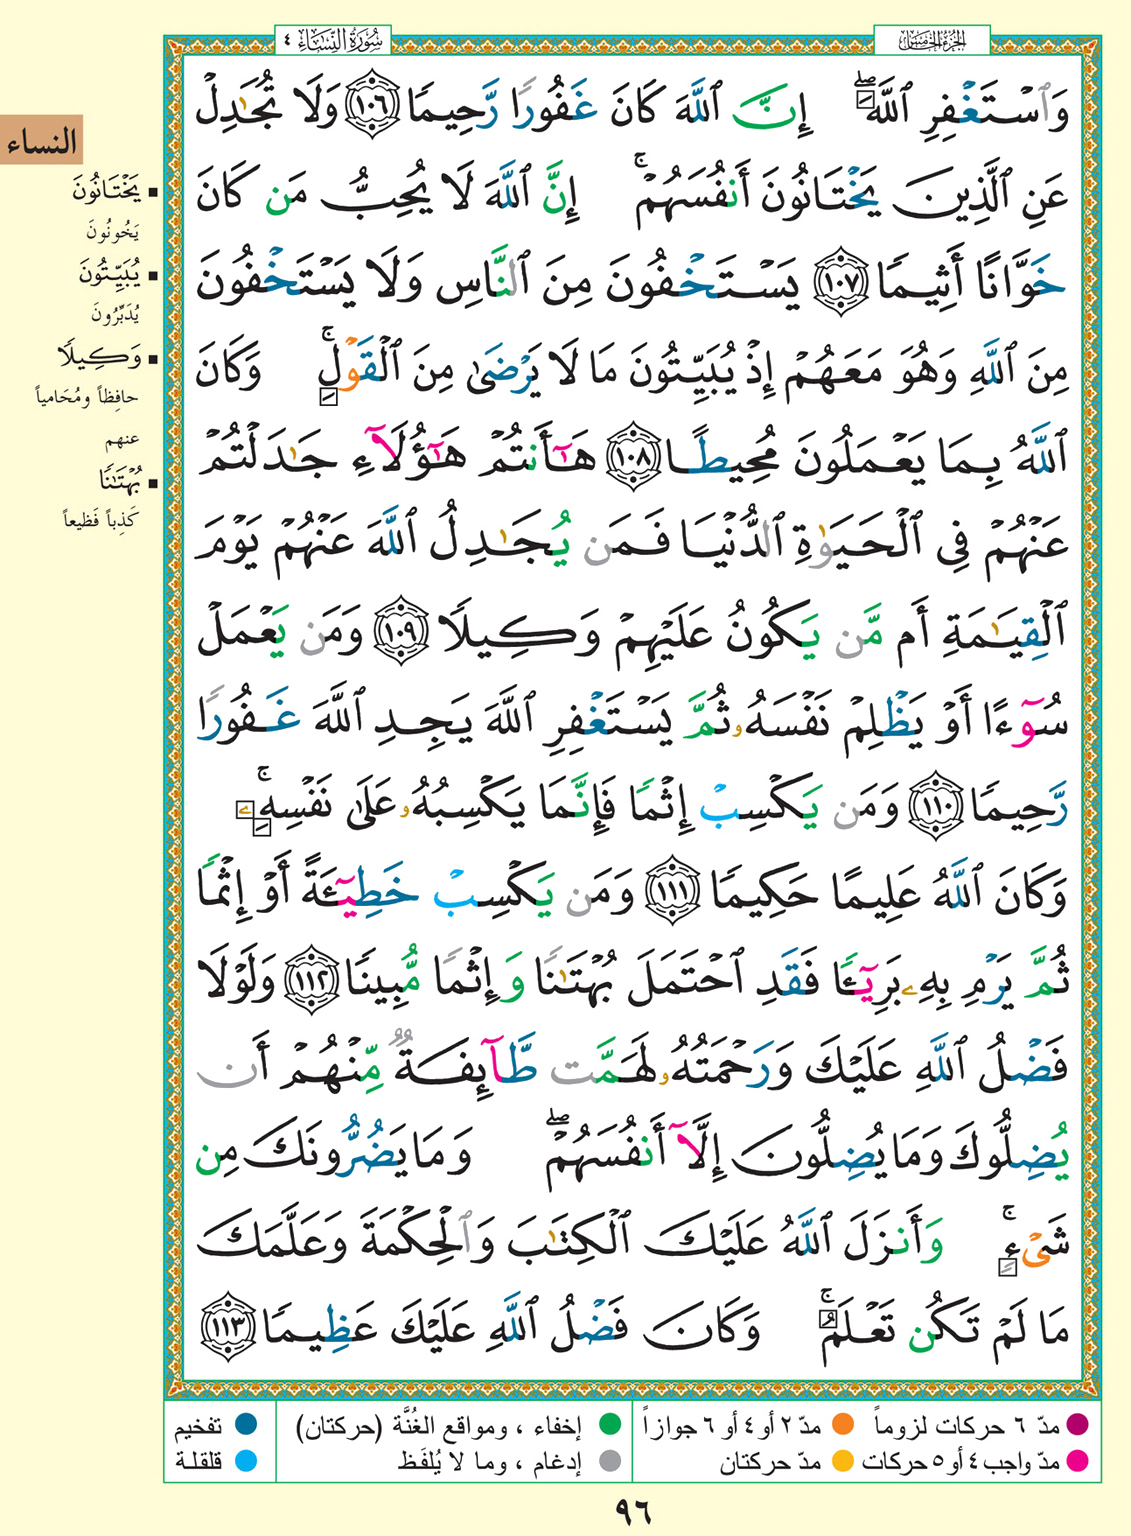 سُورَةُ النِّسَاءِ ٤
الجُزْءُ الخَامِسُ
وَٱسْتَغْفِرِ ٱللَّهَ ۖ إِنَّ ٱللَّهَ كَانَ غَفُورًا رَّحِيمًا ١٠٦ وَلَا تُجَٰدِلْ
عَنِ ٱلَّذِينَ يَخْتَانُونَ أَنفُسَهُمْ ۚ إِنَّ ٱللَّهَ لَا يُحِبُّ مَن كَانَ
خَوَّانًا أَثِيمًا ١٠٧ يَسْتَخْفُونَ مِنَ ٱلنَّاسِ وَلَا يَسْتَخْفُونَ
مِنَ ٱللَّهِ وَهُوَ مَعَهُمْ إِذْ يُبَيِّتُونَ مَا لَا يَرْضَىٰ مِنَ ٱلْقَوْلِ ۚ وَكَانَ
ٱللَّهُ بِمَا يَعْمَلُونَ مُحِيطًا ١٠٨ هَٰٓأَنتُمْ هَٰٓؤُلَآءِ جَٰدَلْتُمْ
عَنْهُمْ فِى ٱلْحَيَوٰةِ ٱلدُّنْيَا فَمَن يُجَٰدِلُ ٱللَّهَ عَنْهُمْ يَوْمَ
ٱلْقِيَٰمَةِ أَم مَّن يَكُونُ عَلَيْهِمْ وَكِيلًا ١٠٩ وَمَن يَعْمَلْ
سُوٓءًا أَوْ يَظْلِمْ نَفْسَهُۥ ثُمَّ يَسْتَغْفِرِ ٱللَّهَ يَجِدِ ٱللَّهَ غَفُورًا
رَّحِيمًا ١١٠ وَمَن يَكْسِبْ إِثْمًا فَإِنَّمَا يَكْسِبُهُۥ عَلَىٰ نَفْسِهِۦ ۚ
وَكَانَ ٱللَّهُ عَلِيمًا حَكِيمًا ١١١ وَمَن يَكْسِبْ خَطِيٓـَٔةً أَوْ إِثْمًا
ثُمَّ يَرْمِ بِهِۦ بَرِيٓـًٔا فَقَدِ ٱحْتَمَلَ بُهْتَٰنًا وَإِثْمًا مُّبِينًا ١١٢ وَلَوْلَا
فَضْلُ ٱللَّهِ عَلَيْكَ وَرَحْمَتُهُۥ لَهَمَّت طَّآئِفَةٌ مِّنْهُمْ أَن
يُضِلُّوكَ وَمَا يُضِلُّونَ إِلَّآ أَنفُسَهُمْ ۖ وَمَا يَضُرُّونَكَ مِن
شَىْءٍ ۚ وَأَنزَلَ ٱللَّهُ عَلَيْكَ ٱلْكِتَٰبَ وَٱلْحِكْمَةَ وَعَلَّمَكَ
مَا لَمْ تَكُن تَعْلَمُ ۚ وَكَانَ فَضْلُ ٱللَّهِ عَلَيْكَ عَظِيمًا ١١٣
النساء
▪ يَخْتَانُونَ
يَخُونُونَ
▪ يُبَيِّتُونَ
يُدَبِّرُونَ
▪ وَكِيلًا
حافِظاً ومُحَامياً
عنهم
▪ بُهْتَٰنًا
كَذِباً فَظِيعاً
مدّ ٦ حركات لزوماً مدّ ٢ أو ٤ أو ٦ جوازاً إخفاء ، ومواقع الغُنَّة (حركتان) تفخيم
مدّ واجب ٤ أو ٥ حركات مدّ حركتان إدغام ، وما لا يُلفَظ قلقلة
٩٦